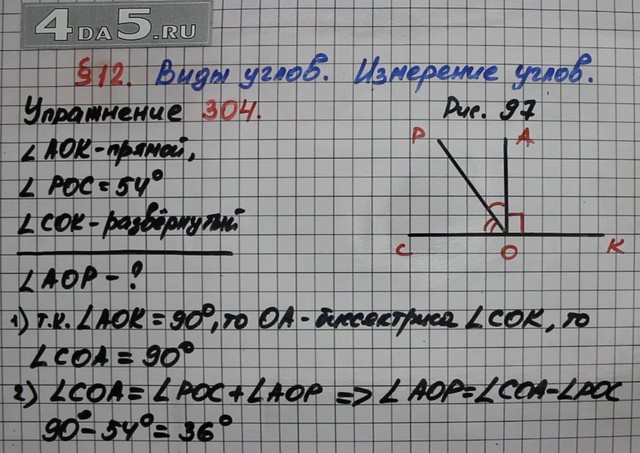 4DA5.RU
§12. Виды углов. Измерение углов.
Упражнение 304.
∠AOK - прямой,
∠POC = 54°
∠COK - развёрнутый
∠AOP - ?
Рис. 97
P A
C O K
1) т.к. ∠AOK = 90°, то OA - биссектриса ∠COK, то
∠COA = 90°
2) ∠COA = ∠POC + ∠AOP => ∠AOP = ∠COA - ∠POC
90° - 54° = 36°